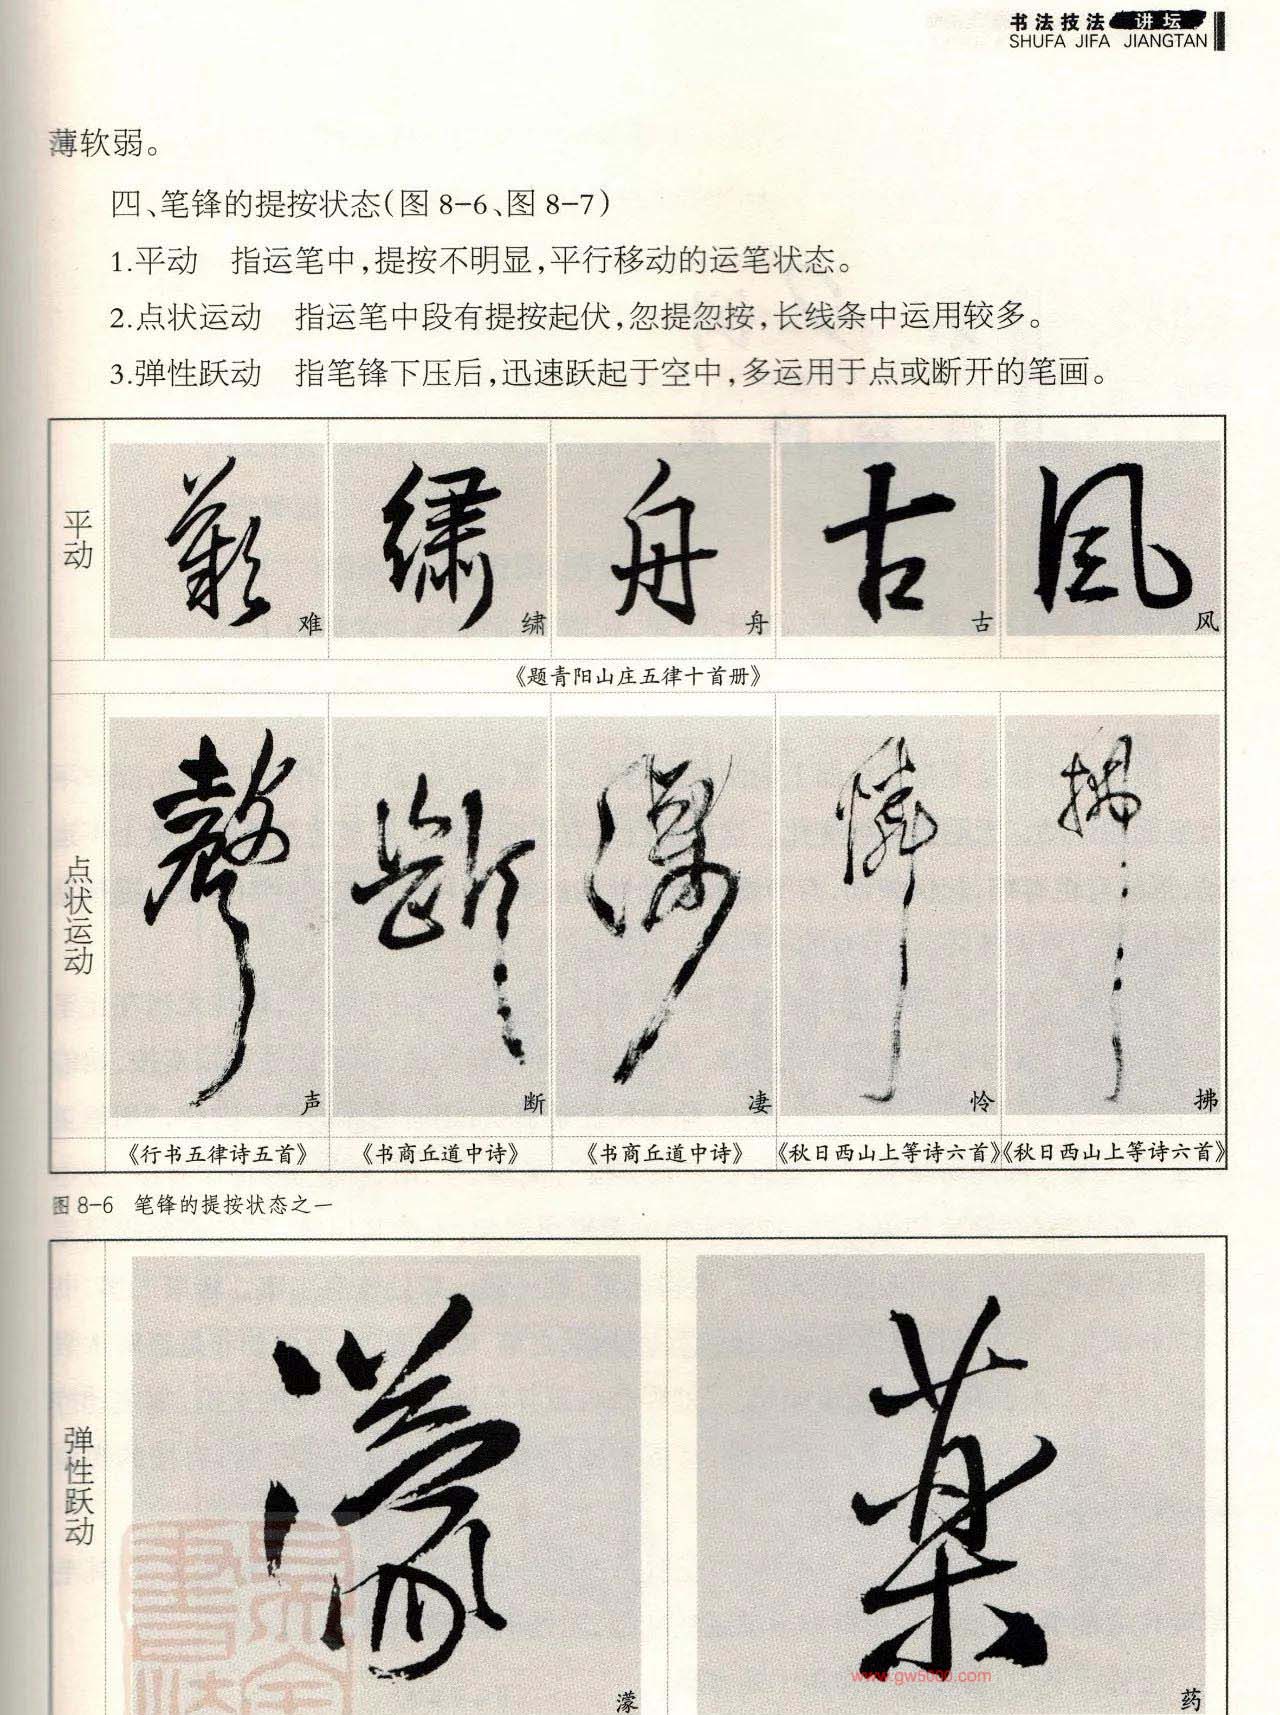 书法技法 讲坛
SHUFA JIFA JIANGTAN
薄软弱。
四、笔锋的提按状态(图8-6、图8-7)
1.平动 指运笔中,提按不明显,平行移动的运笔状态。
2.点状运动 指运笔中段有提按起伏,忽提忽按,长线条中运用较多。
3.弹性跃动 指笔锋下压后,迅速跃起于空中,多运用于点或断开的笔画。
平动
难 绣 舟 古 风
《题青阳山庄五律十首册》
点状运动
声 断 凄 怜 拂
《行书五律诗五首》 《书商丘道中诗》 《书商丘道中诗》 《秋日西山上等诗六首》 《秋日西山上等诗六首》
图8-6 笔锋的提按状态之一
弹性跃动
濛 药
www.gw5000.com